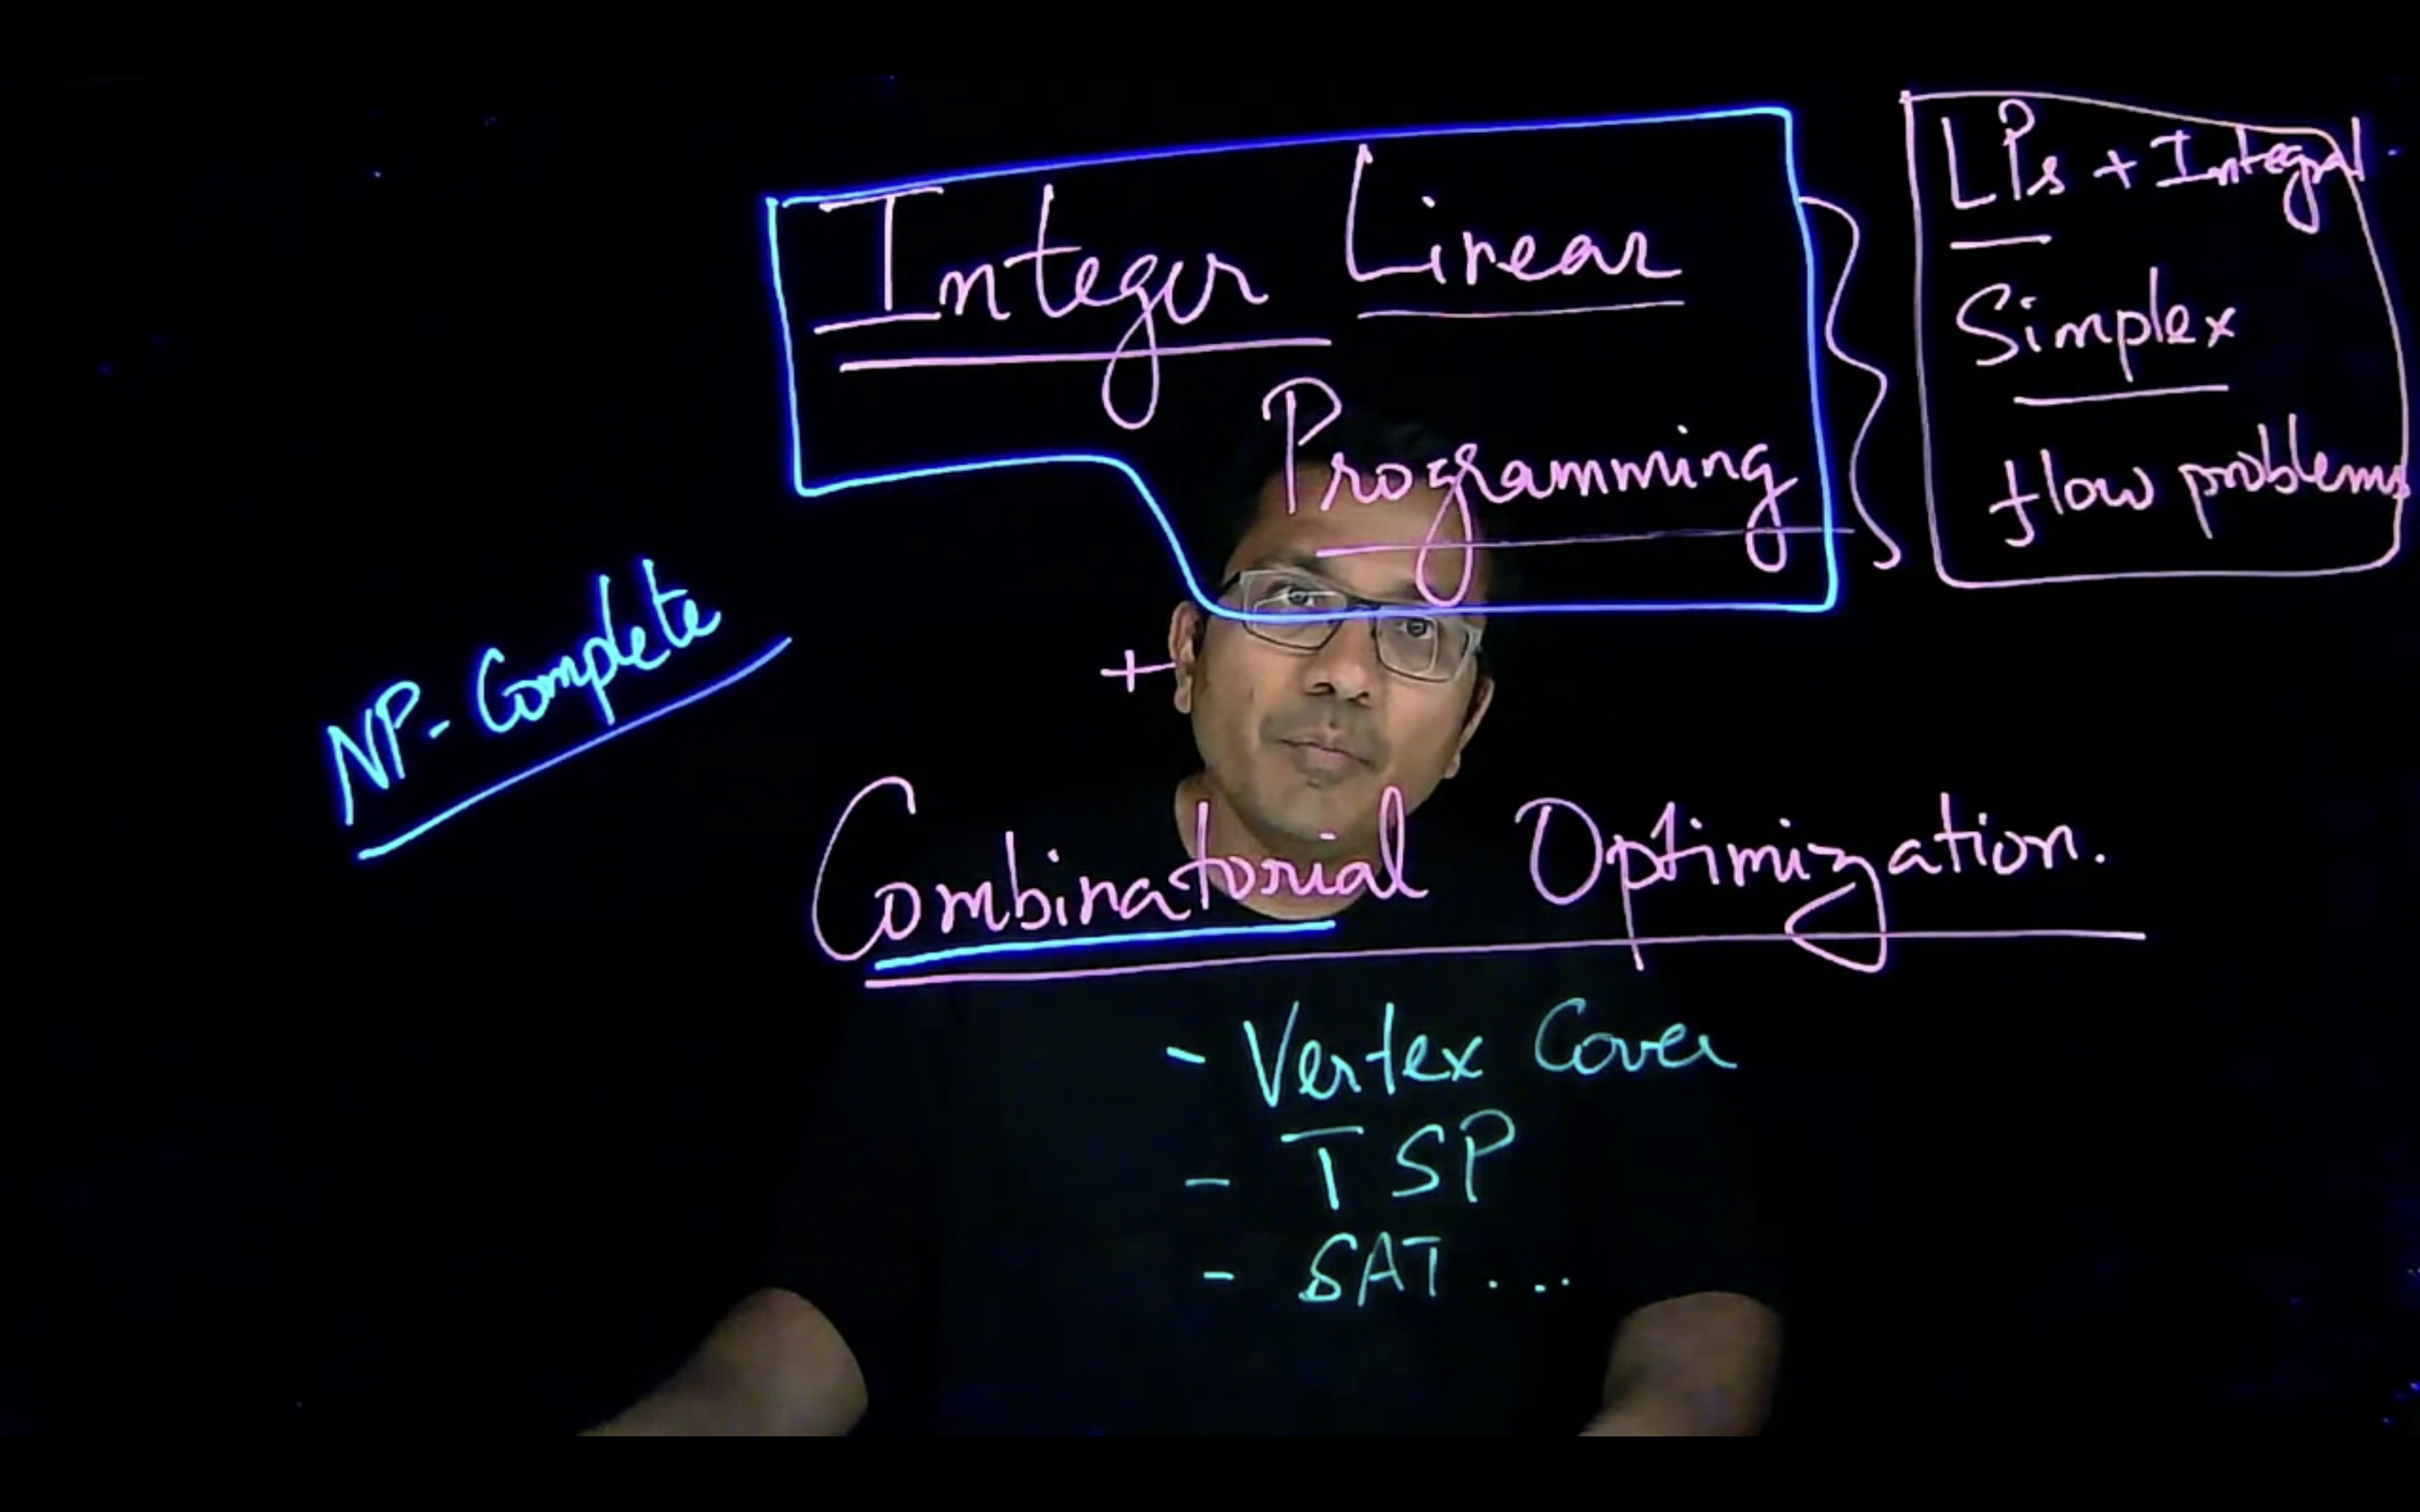 Integer Linear
Programming
LPs + Integral
Simplex
flow problems
NP-Complete
+
Combinatorial Optimization.
- Vertex Cover
- TSP
- SAT...